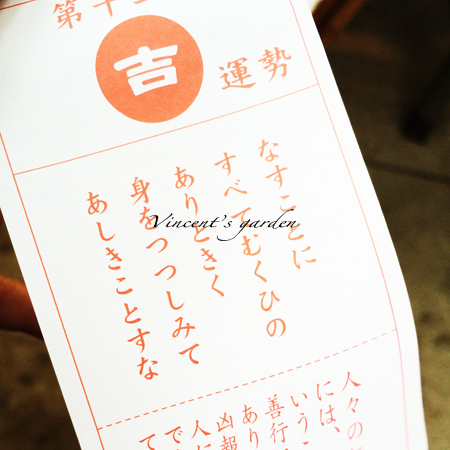 第十
吉
運勢
なすことに
すべてむくひの
ありときく
身をつつしみて
あしきことすな
Vincent's garden
人々の
には、
いうこ
善行
あり
凶報
人に
で
て